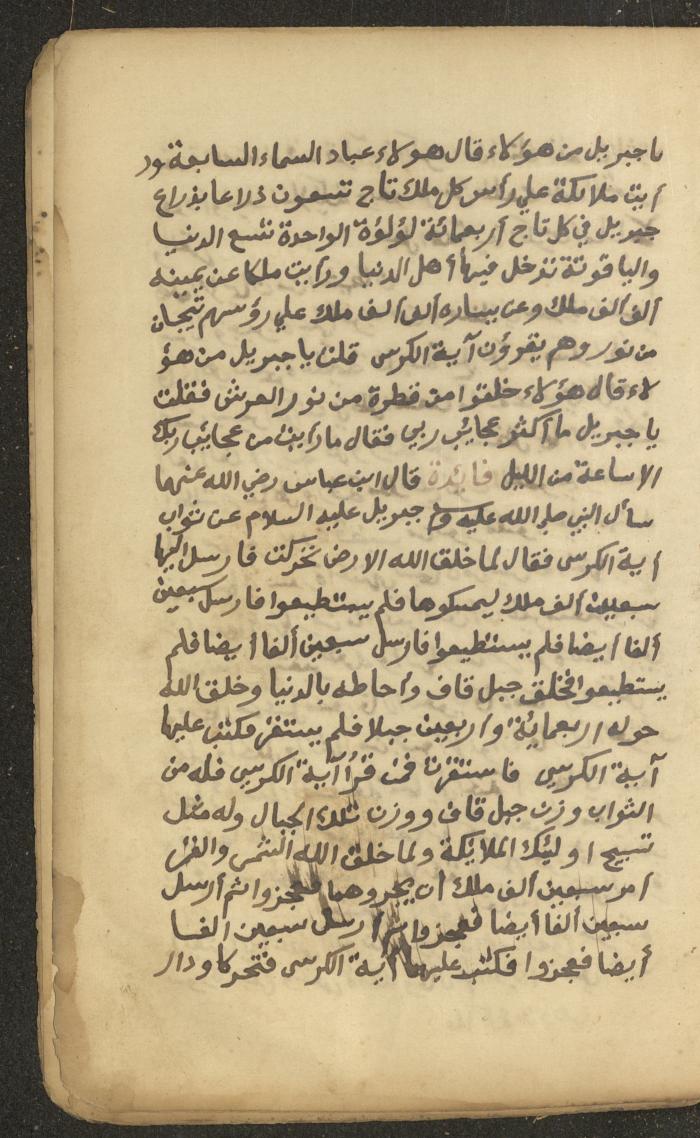 يا جبريل من هؤلاء قال هولاء عباد السماء السابعة ور
أيت ملائكة علي رأس كل ملك تاج تسعون ذراعا بذراع
جبريل في كل تاج أربعمائة لؤلؤة الواحدة تسع الدنيا
والياقوتة تدخل فيها أهل الدنيا ورأيت ملكا عن يمينه
ألف ألف ملك وعن يساره ألف ألف ملك علي رؤسهم تيجان
من نور وهم يقرؤن آية الكرسي قلت يا جبريل من هؤ
لاء قال هؤلاء خلقوا من قطرة من نور العرش فقلت
يا جبريل ما أكثر عجايب ربي فقال ما رأيت من عجايب ربك
الا ساعة من الليل فايدة قال ابن عباس رضي الله عنهما
سأل النبي صلى الله عليه و جبريل عليه السلام عن ثواب
اية الكرسي فقال لما خلق الله الارض تحركت فارسل اليها
سبعين ألف ملك ليمسكوها فلم يستطيعوا فارسل سبعين
ألفا أيضا فلم يستطيعوا فارسل سبعين ألفا أيضا فلم
يستطيعوا فخلق جبل قاف واحاطه بالدنيا وخلق الله
حوله اربعماية واربعين جبلا فلم يستقر فكتب عليها
آية الكرسي فاستقرت فمن قرأ آية الكرسي فله من
الثواب وزن جبل قاف ووزن تلك الجبال وله مثل
تسبيح اوليك الملايكة ولما خلق الله الشمس والقمر
امر سبعين ألف ملك أن يجروهما فعجزوا ثم أرسل
سبعين ألفا أيضا فعجزوا ثم أرسل سبعين الفا
أيضا فعجزوا فكتب عليهما آية الكرسي فتحركا ودار